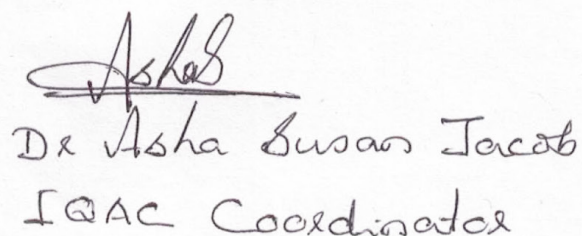 AshaS
Dr Asha Susan Jacob
IQAC Coordinator